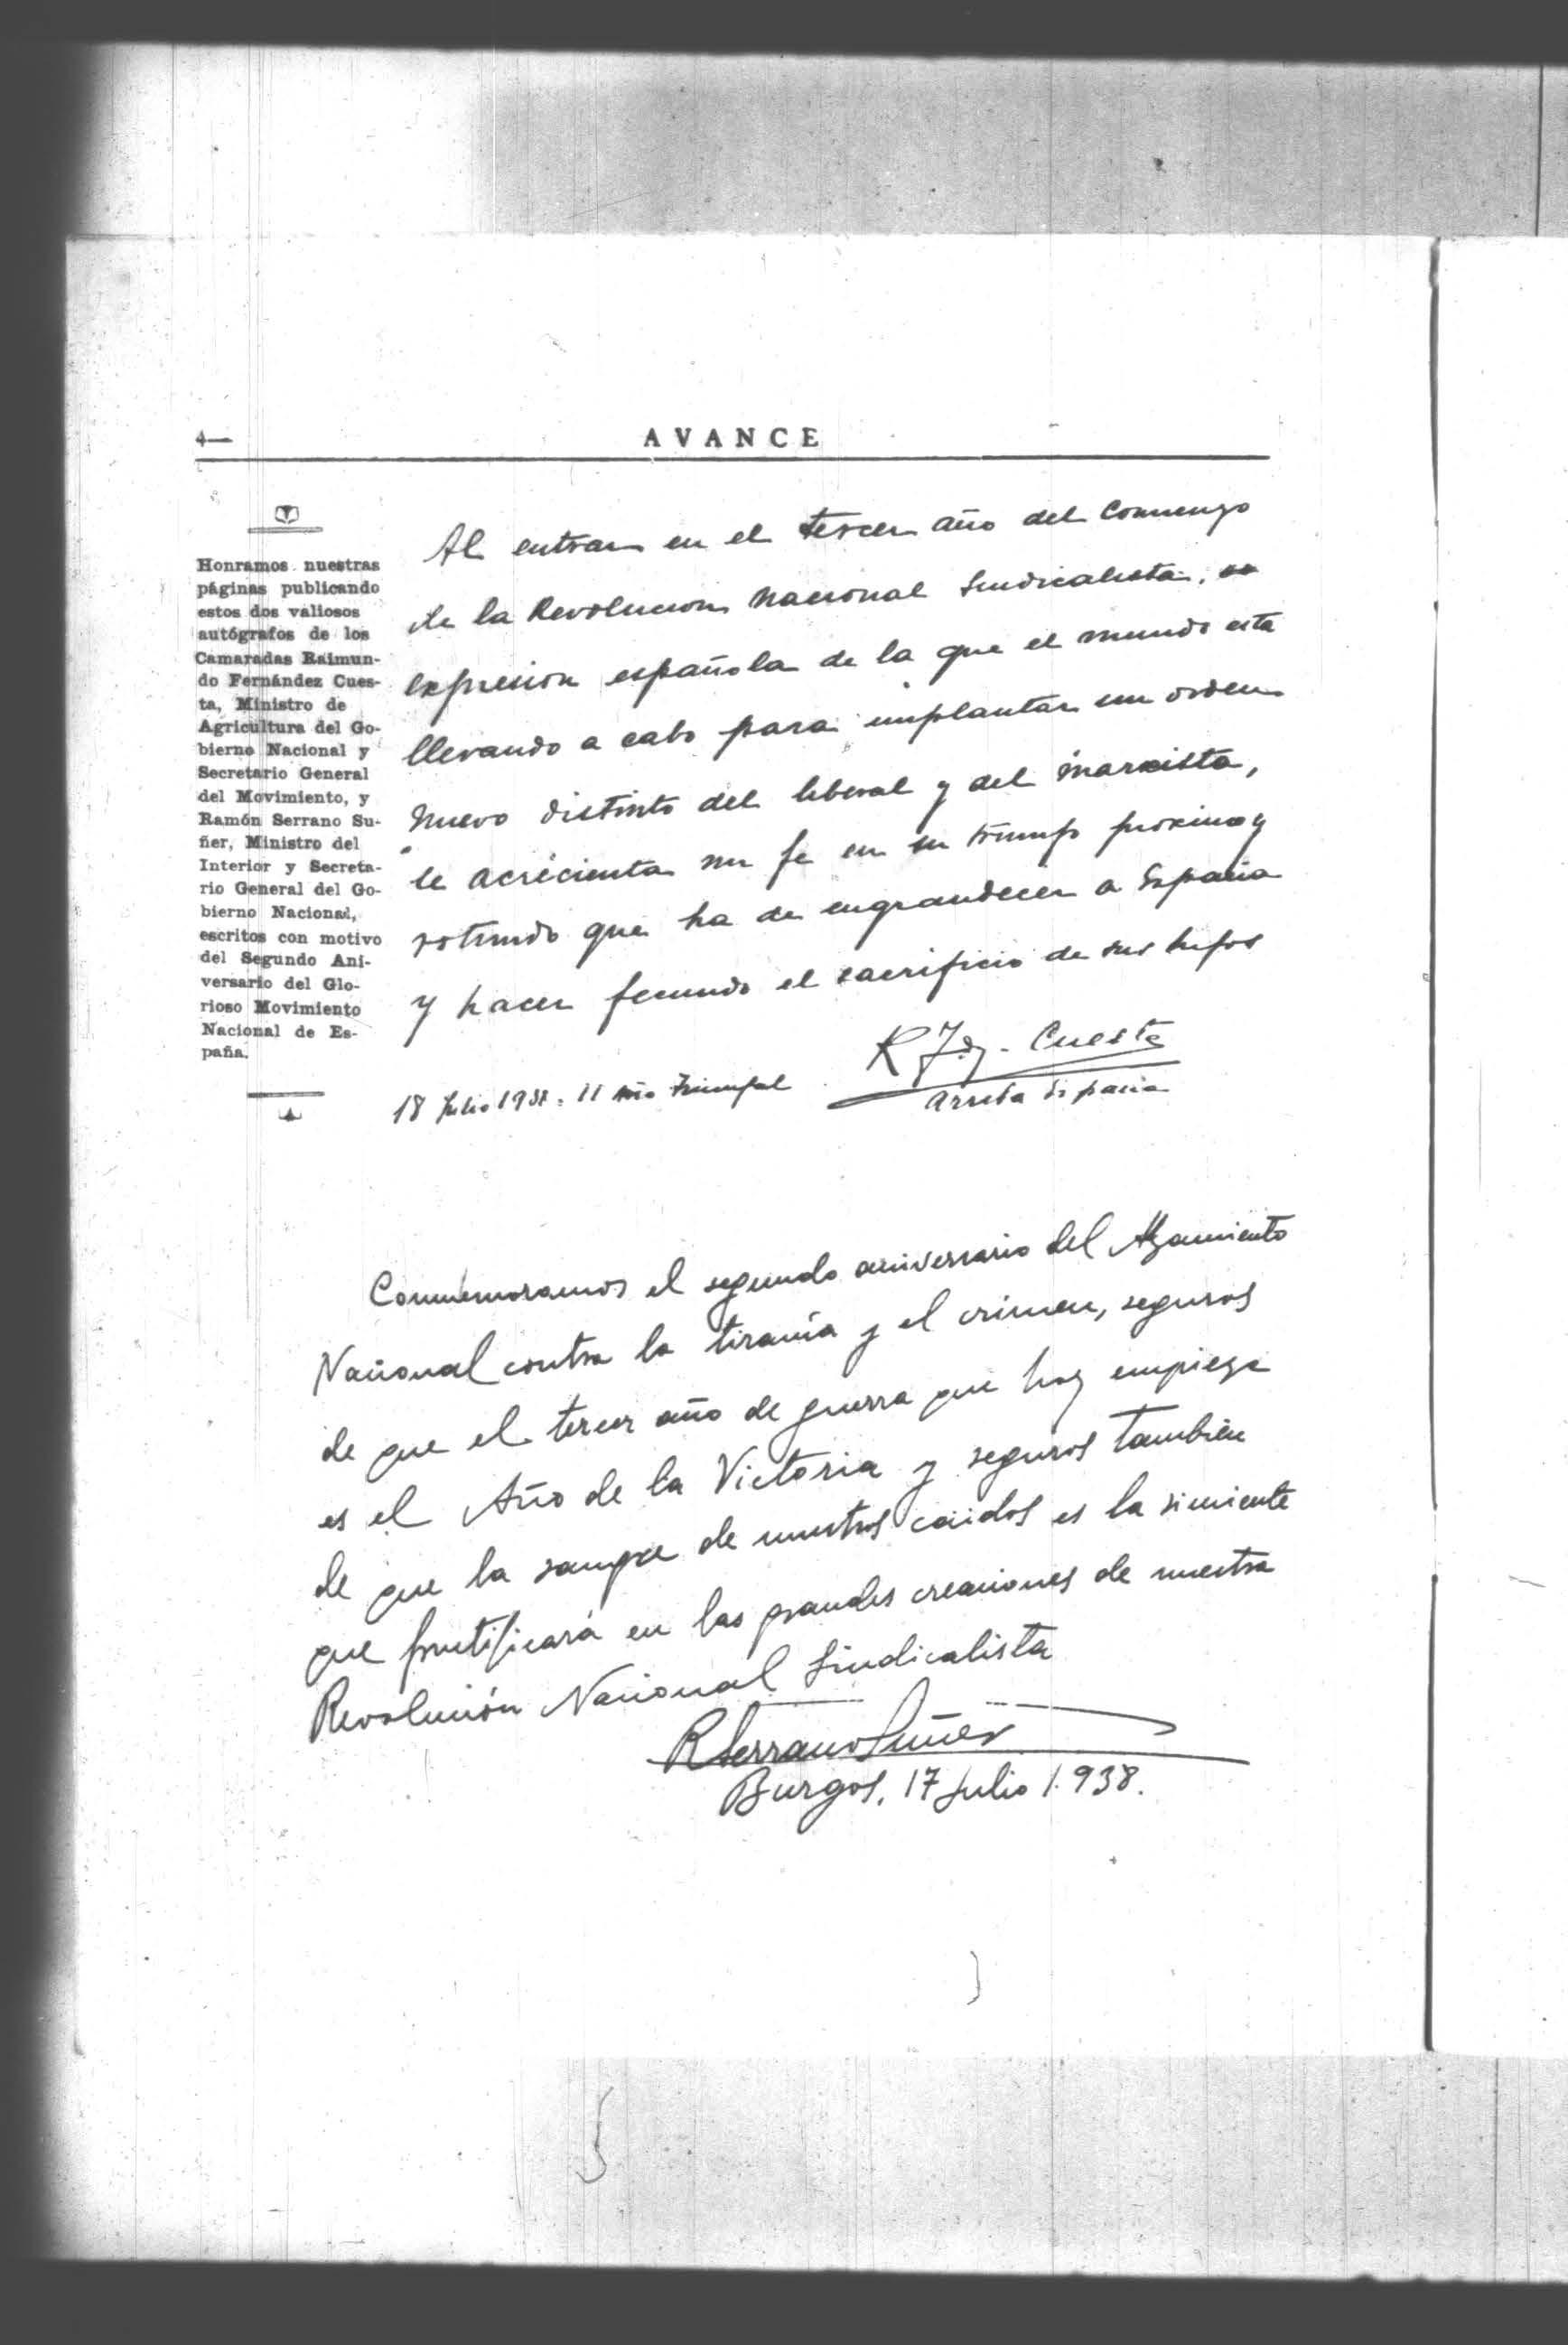 4—
AVANCE
Honramos nuestras
páginas publicando
estos dos valiosos
autógrafos de los
Camaradas Raimun-
do Fernández Cues-
ta, Ministro de
Agricultura del Go-
bierno Nacional y
Secretario General
del Movimiento, y
Ramón Serrano Su-
ñer, Ministro del
Interior y Secreta-
rio General del Go-
bierno Nacional,
escritos con motivo
del Segundo Ani-
versario del Glo-
rioso Movimiento
Nacional de Es-
paña.
Al entrar en el tercer año del comienzo
de la Revolucion Nacional Sindicalista,
expresion española de la que el mundo esta
llevando a cabo para implantar un orden
nuevo distinto del liberal y del marxista,
se acrecienta mi fe en su triunfo proximo y
rotundo que ha de engrandecer a España
y hacer fecundo el sacrificio de sus hijos
R Fdz. Cuesta
Arriba España
18 Julio 1938. II Año Triunfal
Conmemoramos el segundo aniversario del Alzamiento
Nacional contra la tiranía y el crimen, seguros
de que el tercer año de guerra que hoy empieza
es el Año de la Victoria y seguros también
de que la sangre de nuestros caidos es la simiente
que frutificará en las grandes creaciones de nuestra
Revolución Nacional Sindicalista
R Serrano Suñer
Burgos, 17 Julio 1.938.